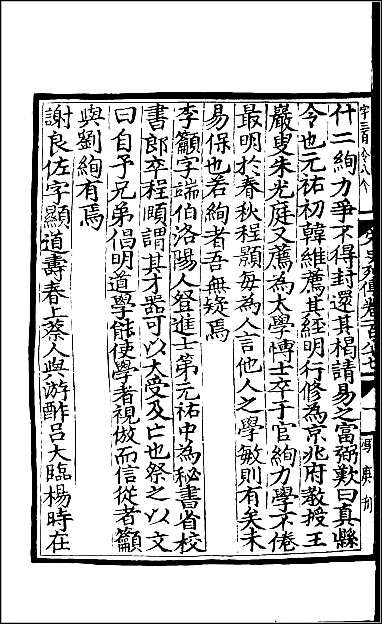 什二絢力爭不得封還其楬請易之富弼歎曰真縣
令也元祐初韓維薦其經明行修為京兆府教授王
巖叟朱光庭又薦為太學博士卒于官絢力學不倦
最明於春秋程顥每為人言他人之學敏則有矣未
易保也若絢者吾無疑焉
李籲字端伯洛陽人登進士第元祐中為秘書省校
書郎卒程頤謂其才器可以大受及亡也祭之以文
曰自予兄弟倡明道學能使學者視倣而信從者籲
與劉絢有焉
謝良佐字顯道壽春上蔡人與游酢呂大臨楊時在